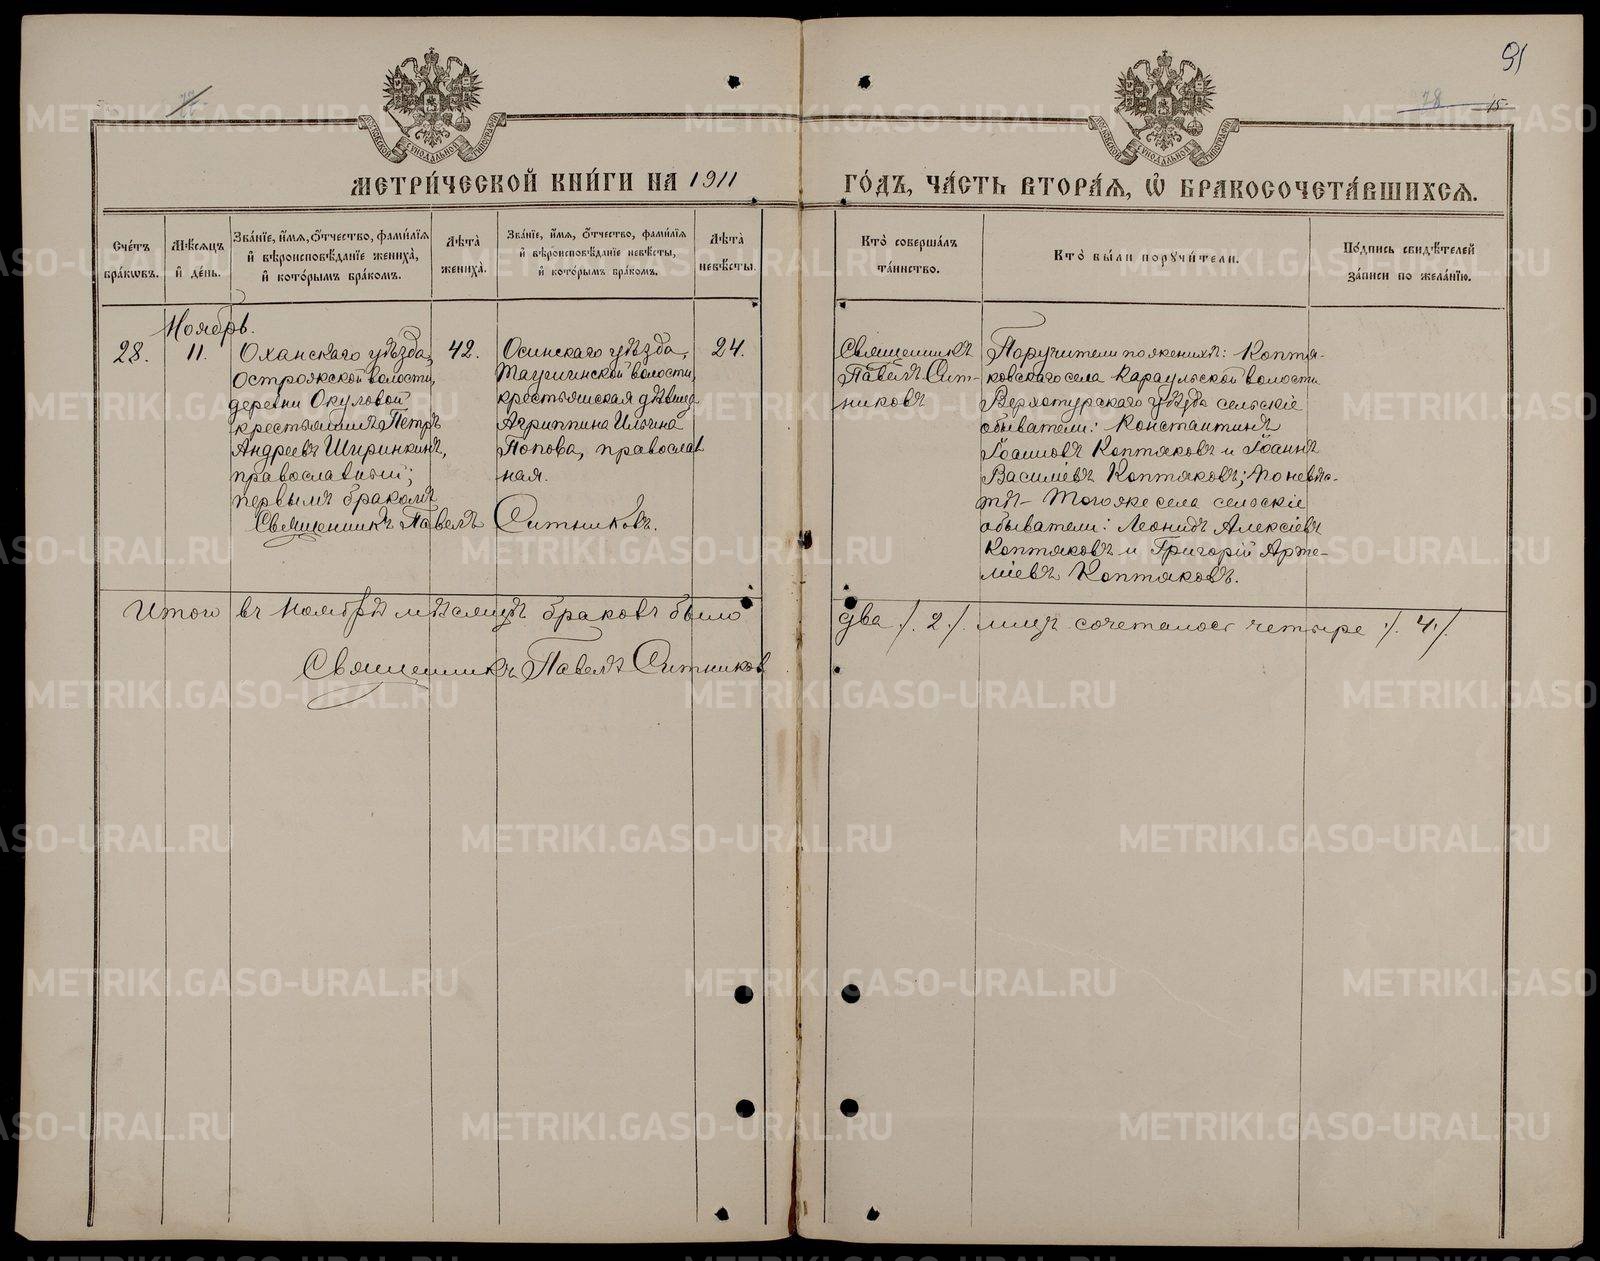 91
77
78
15
СѴНОДАЛЬНОЙ
МЕТРИ́ЧЕСКОЙ КНИ́ГИ НА 1911
ГО́ДЪ, ЧА́СТЬ ВТОРА́Я, Ѽ БРАКОСОЧЕТА́ВШИХСЯ.
Сче́тъ
бра́кѡвъ.
Мѣ́сяцъ
и҆ де́нь.
Зва́нїе, и҆́мя, ѻ҆́тчество, фами́лїя
и҆ вѣроисповѣ́данїе жениха̀,
и҆ кото́рымъ бра́комъ.
Лѣ́та̀
жениха̀.
Зва́нїе, и҆́мя, ѻ҆́тчество, фами́лїя
и҆ вѣроисповѣ́данїе невѣ́сты,
и҆ кото́рымъ бра́комъ.
Лѣ́та̀
невѣ́сты.
Кто̀ соверша́лъ
та́инство.
Кто̀ бы́ли порꙋчи́тели.
По́дпись свидѣ́телей
за́писи по жела́нїю.
Ноябрь.
28.
11.
Оханскаго уѣзда,
Острожской волости,
деревни Окуловой
крестьянинъ Петръ
Андреевъ Ширинкинъ,
православный;
первымъ бракомъ
42.
Осинскаго уѣзда,
волости,
крестьянская дѣвица
Агриппина Ильина
Попова, православ
ная.
24.
Священникъ Павелъ Ситниковъ.
Священникъ
Павелъ Сит-
никовъ
Поручители по женихѣ: Коптя-
ковскаго села Караульской волости
Верхотурскаго уѣзда сельскіе
обыватели: Константинъ
Іоанновъ Коптяковъ и Іоаннъ
Василіевъ Коптяковъ; по невѣс-
тѣ - того же села сельскіе
обыватели: Леонидъ Алексіевъ
Коптяковъ и Григорій Арте-
міевъ Коптяковъ.
Итого въ Ноябрѣ мѣсяцѣ браковъ было
два ./. 2 ./. лицъ сочеталось четыре ./. 4 ./.
Священникъ Павелъ Ситников
METRIKI.GASO-URAL.RU